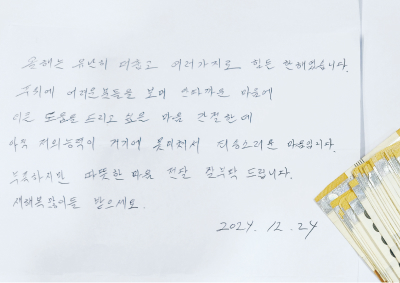 올해는 유난히 덥고 여러가지로 힘든 한해였습니다.
주위에 어려운분들을 보며 안타까운 마음에
도움을 드리고 싶은 마음 간절한데
저의능력이 거기에 못미쳐서 죄송스러운 마음입니다.
부족하지만 따뜻한 마음 전달 잘부탁 드립니다.
새해복많이들 받으세요.
2024. 12. 24